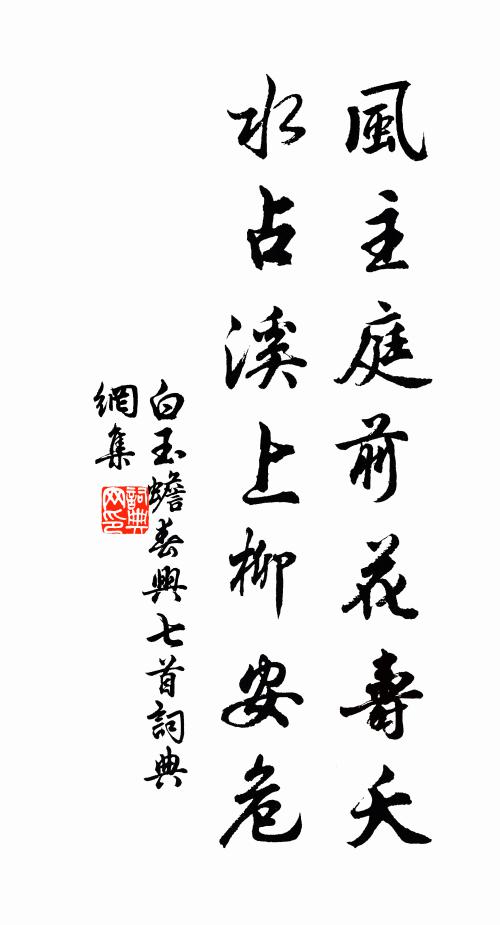 風主庭前花壽夭
水占溪上柳安危
白玉蟾春興七首詞典
網集
詞典
网印